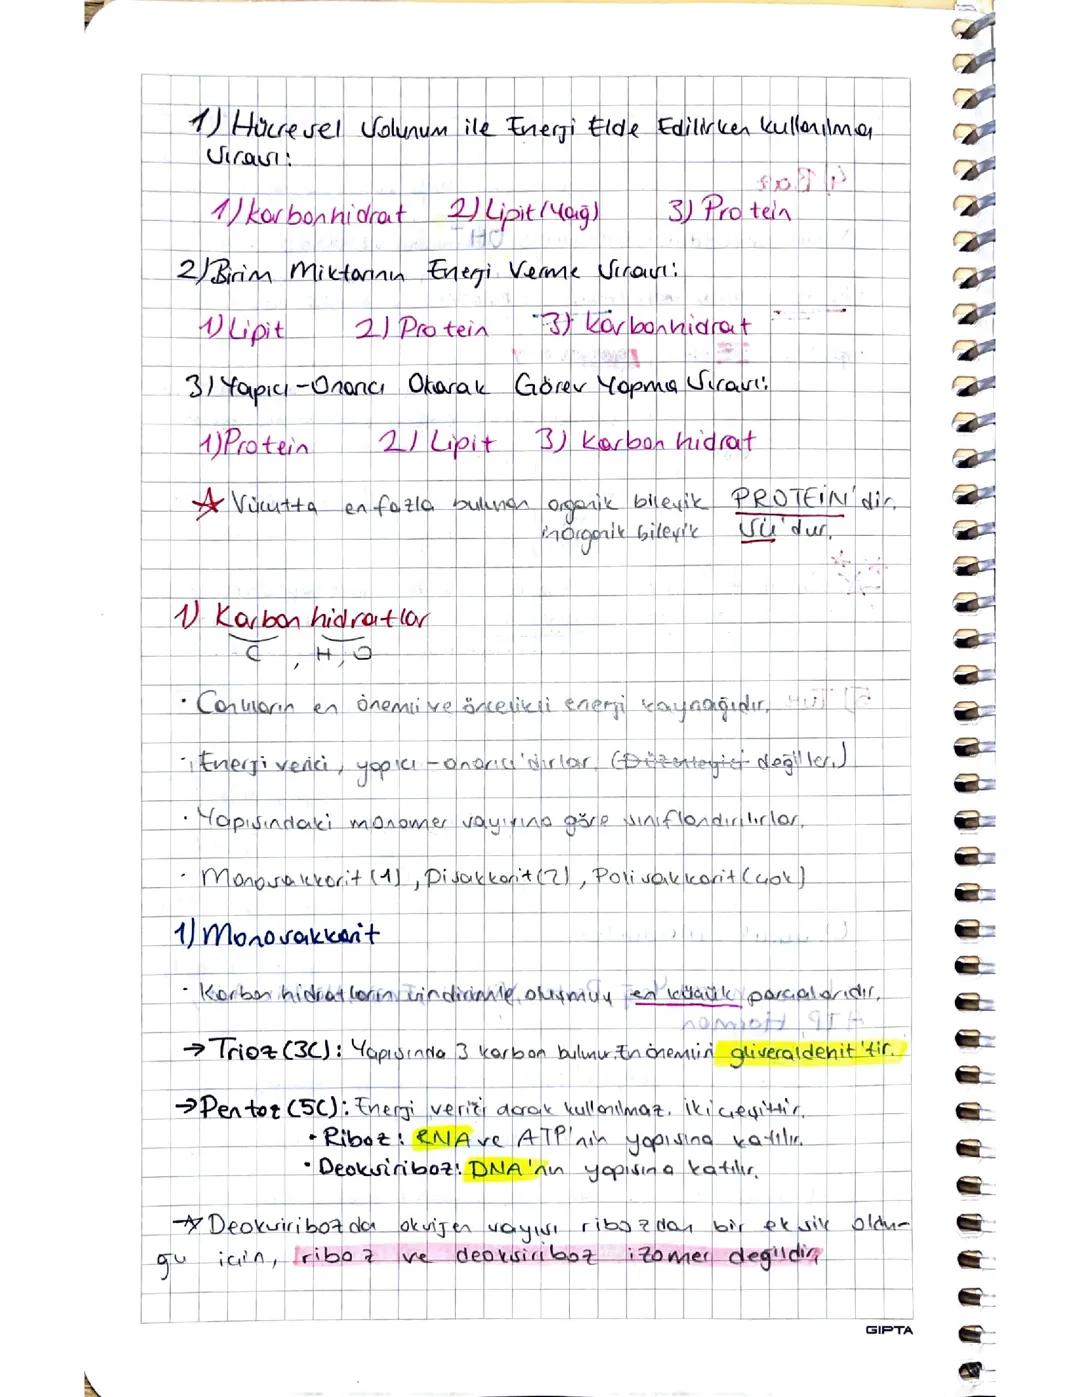 1) Hücresel Solunum ile Enerji Elde Edilirken Kullanılma
Sırası:
1) Karbonhidrat 2) Lipit (Yağ) 3) Protein
2) Birim Miktarının Enerji Verme Sırası:
1) Lipit 2) Protein 3) Karbonhidrat
3) Yapıcı-Onarıcı Olarak Görev Yapma Sırası:
1) Protein 2) Lipit 3) Karbonhidrat
☆ Vücutta en fazla bulunan organik bileşik PROTEİN'dir.
inorganik bileşik SU'dur.
1) Karbonhidratlar
C, H, O
· Canlıların en önemli ve öncelikli enerji kaynağıdır.
· Enerji verici, yapıcı-onarıcı'dırlar. (Düzenleyici değiller.)
· Yapısındaki monomer sayısına göre sınıflandırılırlar.
· Monosakkarit (1), Disakkarit (2), Polisakkarit (çok)
1) Monosakkarit
· Karbonhidratların sindirimiyle oluşmuş en küçük parçalarıdır.
→ Trioz (3C): Yapısında 3 karbon bulunur. En önemlisi gliseraldehit'tir.
→ Pentoz (5C): Enerji verici olarak kullanılmaz. İki çeşittir.
· Riboz: RNA ve ATP'nin yapısına katılır.
· Deoksiriboz: DNA'nın yapısına katılır.
☆ Deoksiribozda oksijen sayısı ribozdan bir eksik oldu-
ğu için, riboz ve deoksiriboz izomer değildir
GIPTA